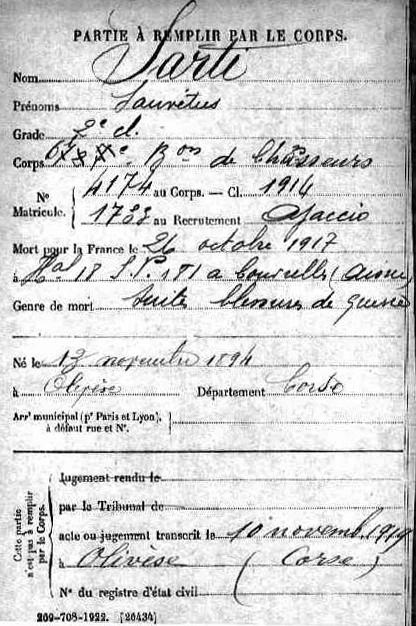 PARTIE À REMPLIR PAR LE CORPS.
Nom Sarti
Prénoms
Grade 2e cl.
Corps Bon de Chasseurs
N° Matricule. { 4174 au Corps. — Cl. 1914
au Recrutement Ajaccio
Mort pour la France le 26 octobre 1917
à Hal 18 S.P. 181 a Courcelles (Aisne)
Genre de mort Suites blessures de guerre
Né le 13 novembre 1894
à Olivèse Département Corse
Arrt municipal (pr Paris et Lyon), à défaut rue et N°. }
Cette partie n'est pas à remplir par le Corps. {
Jugement rendu le
par le Tribunal de
acte ou jugement transcrit le 10 novemb. 1919
à Olivèse (Corse)
N° du registre d'état civil
209-708-1922. [26434]